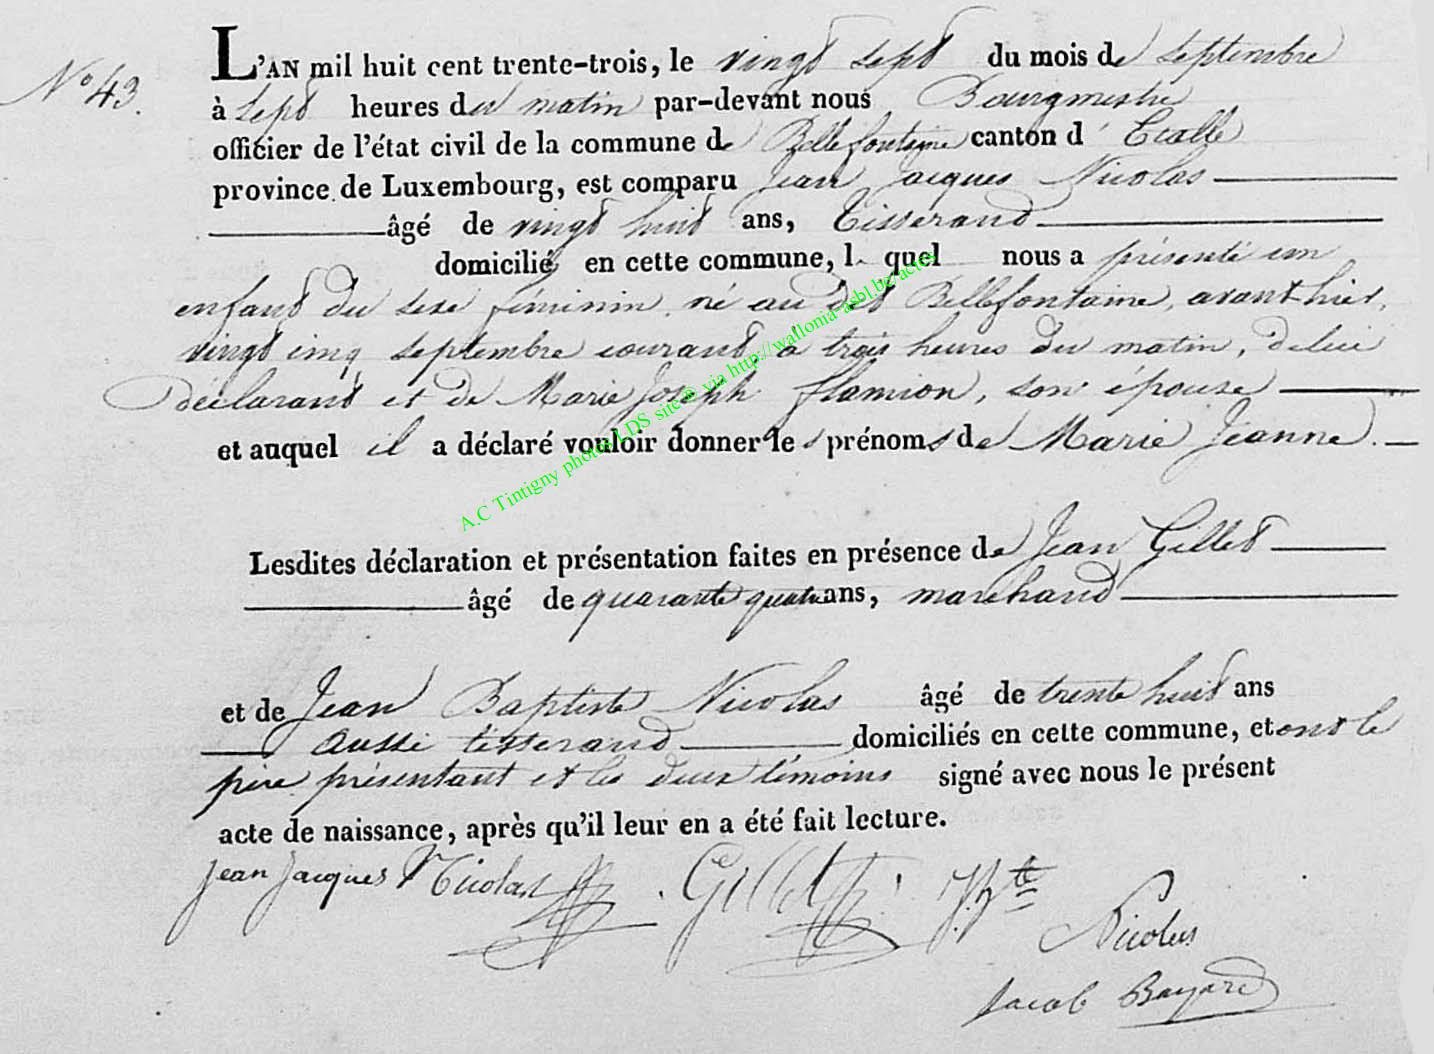 N° 43.
L'AN mil huit cent trente-trois, le vingt sept du mois de septembre
à sept heures du matin par-devant nous Bourgmestre
officier de l'état civil de la commune de Bellefontaine canton d' Etalle
province de Luxembourg, est comparu Jean Jacques Nicolas
âgé de vingt huit ans, tisserand
domicilié en cette commune, l quel nous a présenté un
enfant du sexe féminin, né au dit Bellefontaine, avant hier,
vingt cinq septembre courant à trois heures du matin, de lui
déclarant et de Marie Joseph Flamion, son épouse
et auquel il a déclaré vouloir donner les prénoms de Marie Jeanne.
Lesdites déclaration et présentation faites en présence de Jean Gillet
âgé de quarante quatre ans, marchand
et de Jean Baptiste Nicolas âgé de trente huit ans
aussi tisserand domiciliés en cette commune, et ont le
père présentant et les deux témoins signé avec nous le présent
acte de naissance, après qu'il leur en a été fait lecture.
Jean Jacques Nicolas Gillet J.Bte
Nicolas
Jacob Bayard
A.C Tintigny photos LDS site @ via http://wallonia-asbl.be/actes